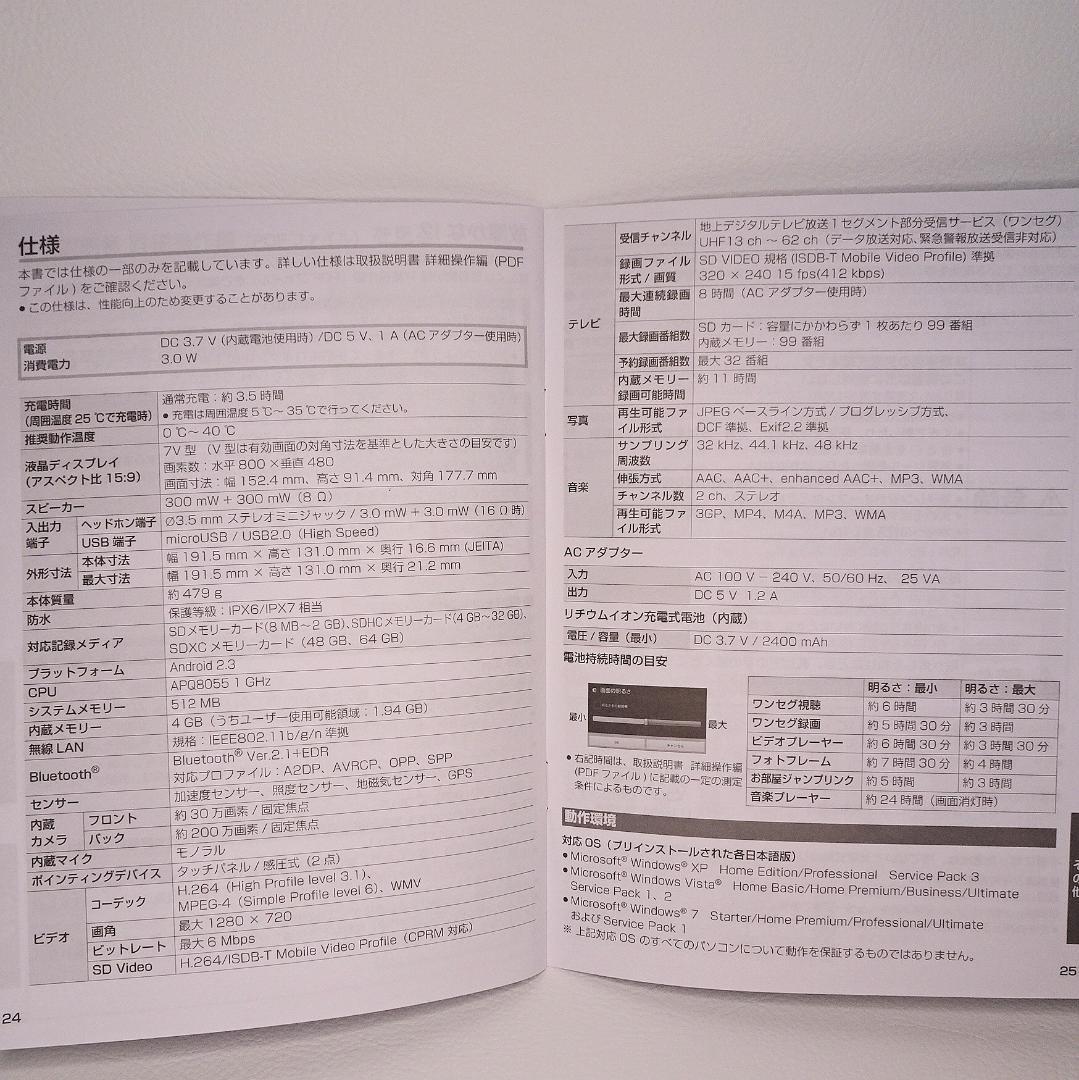 仕様
本書では仕様の一部のみを記載しています。詳しい仕様は取扱説明書 詳細操作編 (PDF
ファイル) をご確認ください。
● この仕様は、性能向上のため変更することがあります。
電源 DC 3.7 V (内蔵電池使用時) /DC 5 V、1 A (AC アダプター使用時)
消費電力 3.0 W
充電時間 通常充電：約 3.5 時間
(周囲温度 25 ℃で充電時) ● 充電は周囲温度 5 ℃～ 35 ℃で行ってください。
推奨動作温度 0 ℃～ 40 ℃
液晶ディスプレイ 7V 型 (V 型は有効画面の対角寸法を基準とした大きさの目安です)
(アスペクト比 15:9) 画素数：水平 800 ×垂直 480
画面寸法：幅 152.4 mm、高さ 91.4 mm、対角 177.7 mm
スピーカー 300 mW + 300 mW (8 Ω)
入出力端子 ヘッドホン端子 Ø3.5 mm ステレオミニジャック / 3.0 mW + 3.0 mW (16 Ω 時)
USB 端子 microUSB / USB2.0 (High Speed)
外形寸法 本体寸法 幅 191.5 mm × 高さ 131.0 mm × 奥行 16.6 mm (JEITA)
最大寸法 幅 191.5 mm × 高さ 131.0 mm × 奥行 21.2 mm
本体質量 約 479 g
防水 保護等級：IPX6/IPX7 相当
対応記録メディア SDメモリーカード(8 MB～2 GB)、SDHCメモリーカード(4 GB～32 GB)、
SDXC メモリーカード (48 GB、64 GB)
プラットフォーム Android 2.3
CPU APQ8055 1 GHz
システムメモリー 512 MB
内蔵メモリー 4 GB (うちユーザー使用可能領域：1.94 GB)
無線 LAN 規格：IEEE802.11b/g/n 準拠
Bluetooth® Bluetooth® Ver.2.1+EDR
対応プロファイル：A2DP、AVRCP、OPP、SPP
センサー 加速度センサー、照度センサー、地磁気センサー、GPS
内蔵カメラ フロント 約 30 万画素 / 固定焦点
バック 約 200 万画素 / 固定焦点
内蔵マイク モノラル
ポインティングデバイス タッチパネル / 感圧式 (2 点)
ビデオ コーデック H.264 (High Profile level 3.1)、
MPEG-4 (Simple Profile level 6)、WMV
画角 最大 1280 × 720
ビットレート 最大 6 Mbps
SD Video H.264/ISDB-T Mobile Video Profile (CPRM 対応)
24
テレビ 受信チャンネル 地上デジタルテレビ放送 1 セグメント部分受信サービス (ワンセグ)
UHF13 ch ～ 62 ch (データ放送対応、緊急警報放送受信非対応)
録画ファイル形式 / 画質 SD VIDEO 規格 (ISDB-T Mobile Video Profile) 準拠
320 × 240 15 fps(412 kbps)
最大連続録画時間 8 時間 (AC アダプター使用時)
最大録画番組数 SD カード：容量にかかわらず 1 枚あたり 99 番組
内蔵メモリー：99 番組
予約録画番組数 最大 32 番組
内蔵メモリー録画可能時間 約 11 時間
写真 再生可能ファイル形式 JPEG ベースライン方式 / プログレッシブ方式、
DCF 準拠、Exif2.2 準拠
音楽 サンプリング周波数 32 kHz、44.1 kHz、48 kHz
伸張方式 AAC、AAC+、enhanced AAC+、MP3、WMA
チャンネル数 2 ch、ステレオ
再生可能ファイル形式 3GP、MP4、M4A、MP3、WMA
AC アダプター
入力 AC 100 V － 240 V、50/60 Hz、 25 VA
出力 DC 5 V 1.2 A
リチウムイオン充電式電池 (内蔵)
電圧 / 容量 (最小) DC 3.7 V / 2400 mAh
電池持続時間の目安
画面の明るさ
最小 最大
● 右記時間は、取扱説明書 詳細操作編
(PDF ファイル) に記載の一定の測定
条件によるものです。
明るさ：最小 明るさ：最大
ワンセグ視聴 約 6 時間 約 3 時間 30 分
ワンセグ録画 約 5 時間 30 分 約 3 時間
ビデオプレーヤー 約 6 時間 30 分 約 3 時間 30 分
フォトフレーム 約 7 時間 30 分 約 4 時間
お部屋ジャンプリンク 約 5 時間 約 3 時間
音楽プレーヤー 約 24 時間 (画面消灯時)
動作環境
対応 OS (プリインストールされた各日本語版)
● Microsoft® Windows® XP Home Edition/Professional Service Pack 3
● Microsoft® Windows Vista® Home Basic/Home Premium/Business/Ultimate
Service Pack 1、2
● Microsoft® Windows® 7 Starter/Home Premium/Professional/Ultimate
および Service Pack 1
※ 上記対応 OS のすべてのパソコンについて動作を保証するものではありません。
その他
25